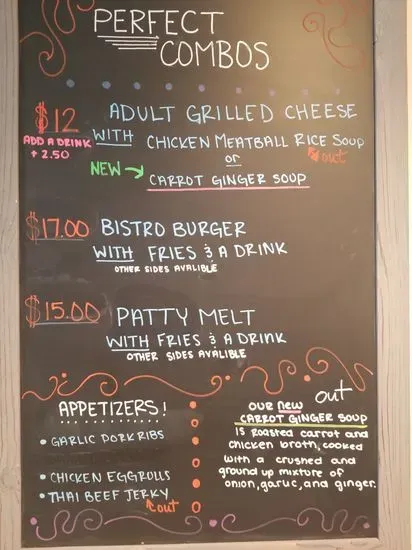 PERFECT
COMBOS
$12 ADULT GRILLED CHEESE
ADD A DRINK
+ 2.50
WITH CHICKEN MEATBALL RICE SOUP
or out
NEW → CARROT GINGER SOUP
$17.00 BISTRO BURGER
WITH FRIES & A DRINK
OTHER SIDES AVALIBLE
$15.00 PATTY MELT
WITH FRIES & A DRINK
OTHER SIDES AVALIBLE
APPETIZERS!
• GARLIC DORK RIBS
• CHICKEN EGGROLLS
• THAI BEEF JERKY
out
our new out
CARROT GINGER SOUP
is Roasted carrot and
chicken broth, cooked
with a crushed and
ground up mixture of
onion, garlic, and ginger.